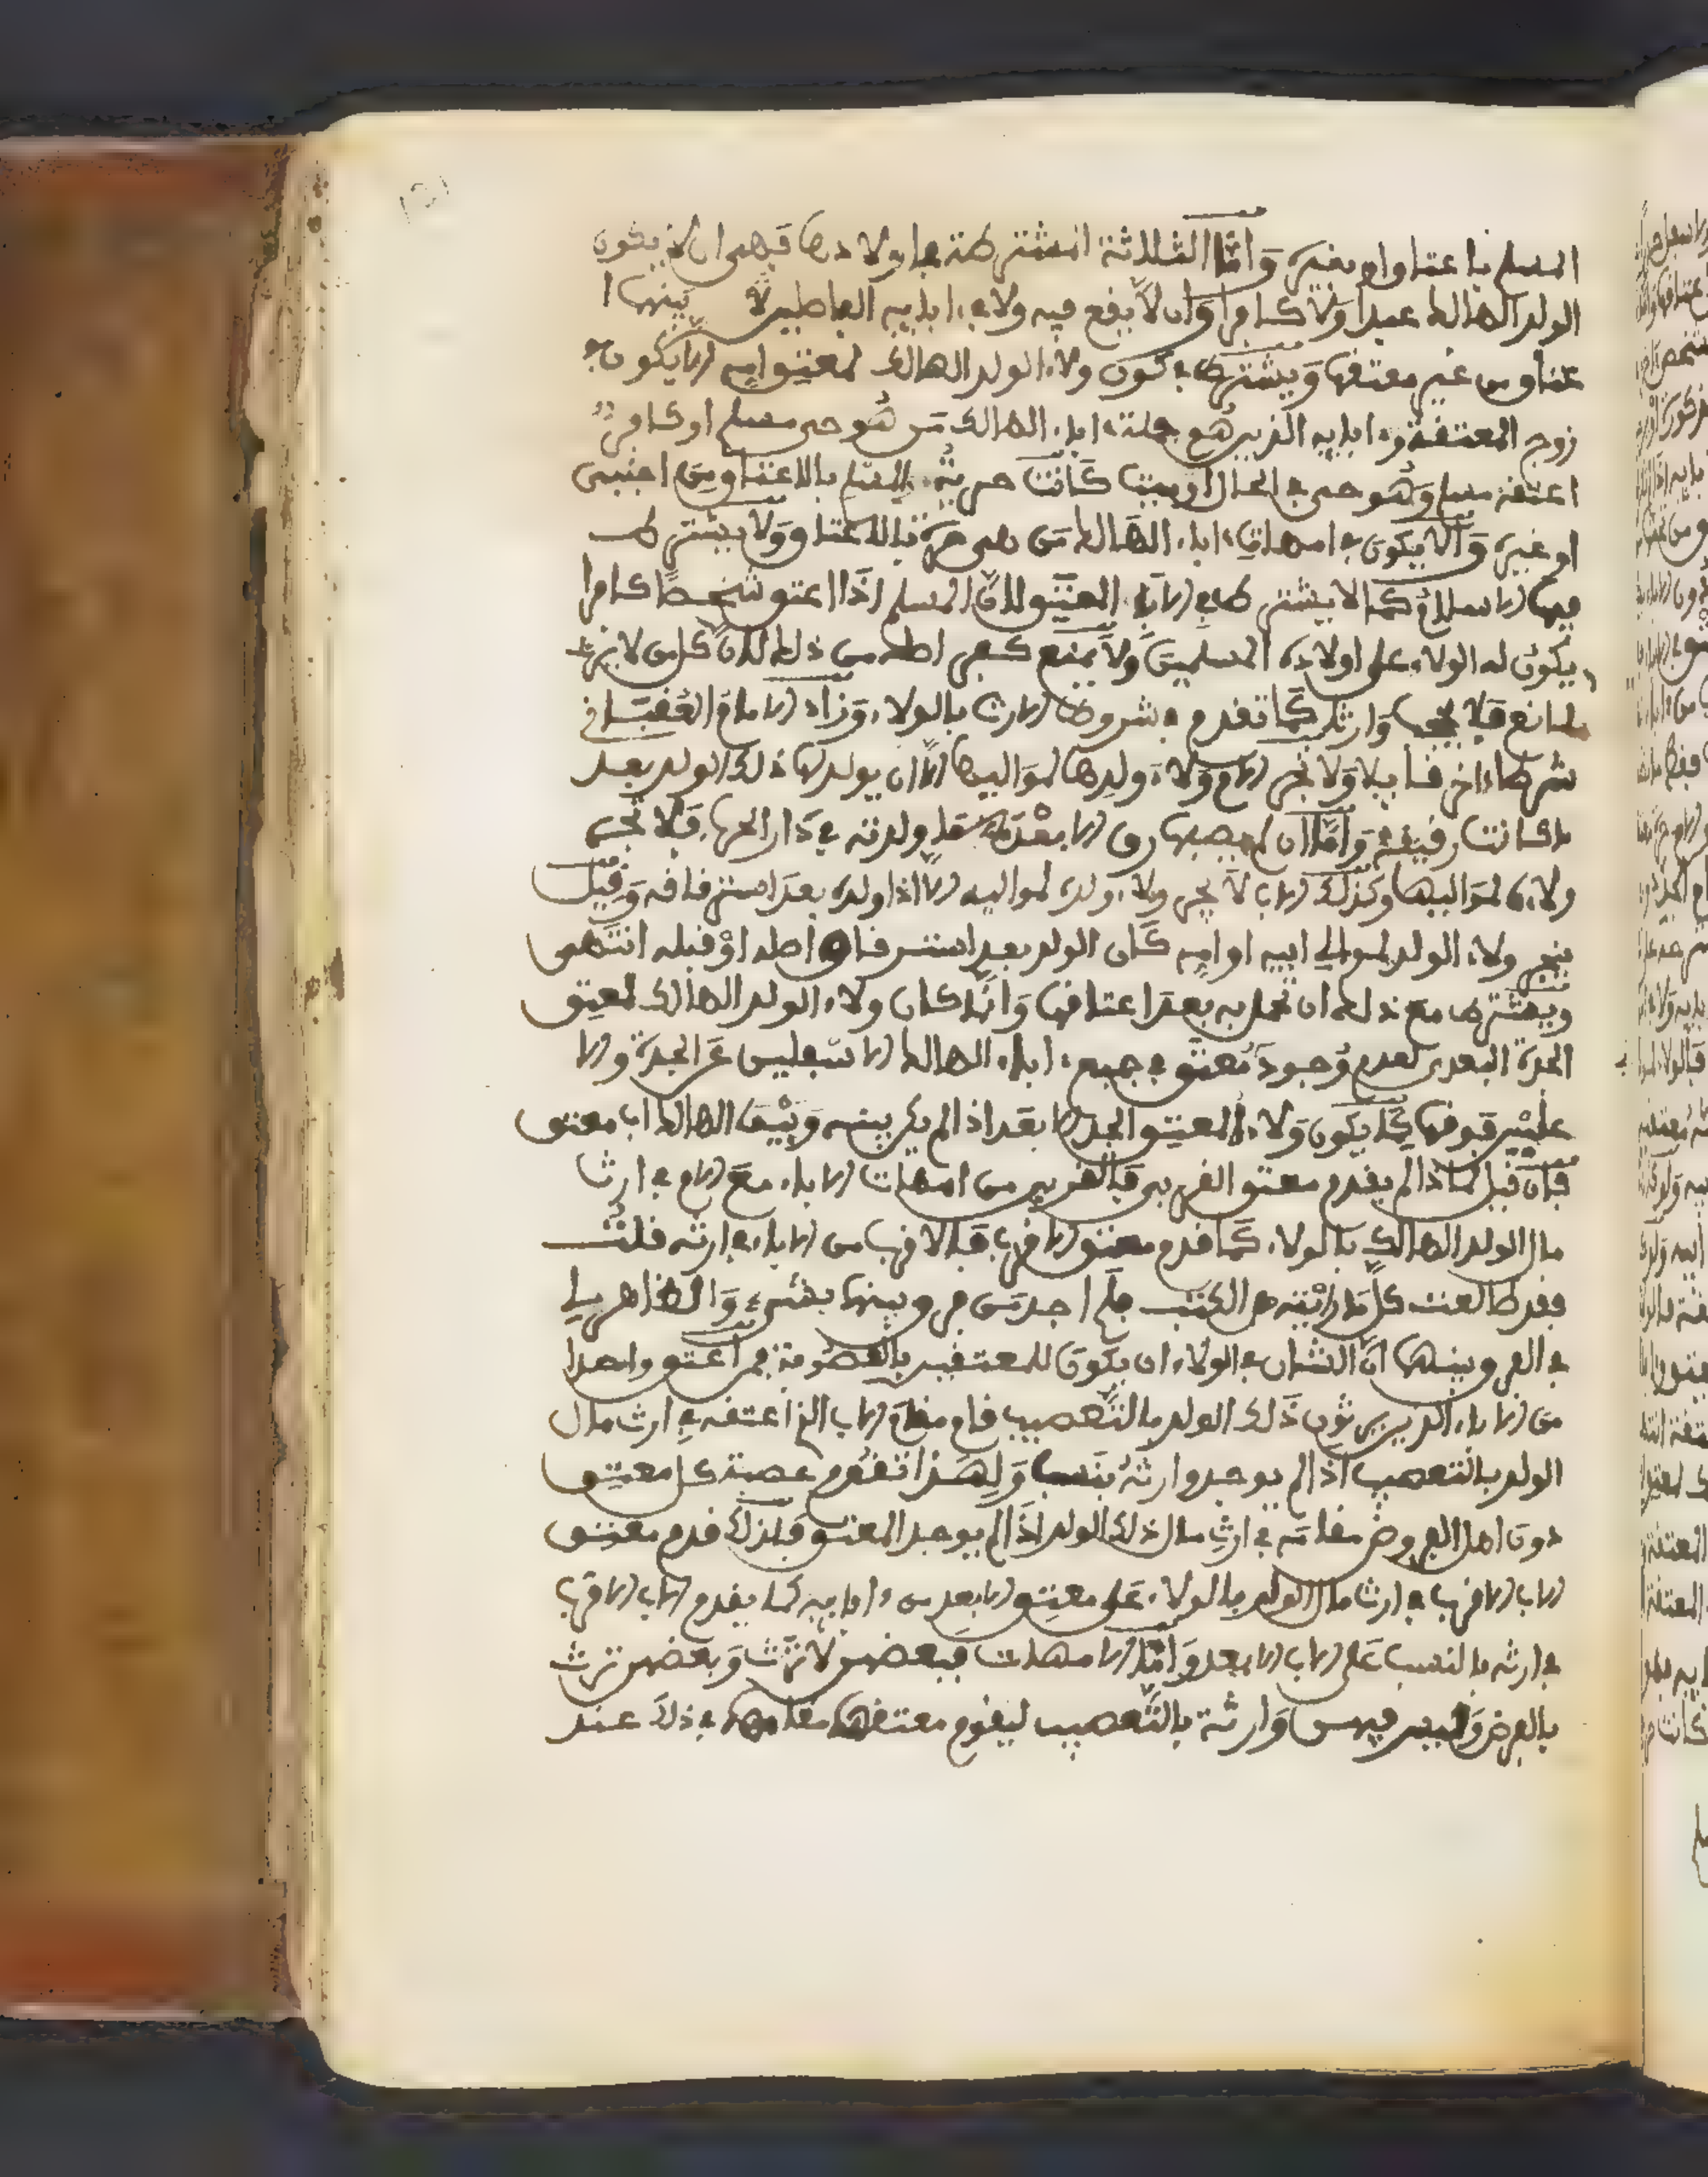 المسلم باعتاق او بغيره وَأمَّا الثلاثة المشترطة في اولادها فهي ان لا يكون
الولد الهالك عبدا ولا كافرا وَان لا يقع فيه ولا في ءابايه الفاصلين بينهما
عتاق من غير معتقها وَيشترط في كون ولاء الولد الهالك لمعتق امه الا يكون في
زوج المعتقة وءابايه الذين هم جملة ءاباء الهالك مَن هُو حر مسلم او كافر
اعتقه مسلم وَهُو حي في الحال او ميت كانت حريته بالاعتاق من اجنبي
او غيره وَألا يكون في امهات ءاباء الهالك مَن هي حرة بالاعتاق وَلا يشترط
فيها الاسلام كما لا يشترط في الاباء المعتق لان المسلم إذَا اعتق شخصا كافرا
يكون له الولاء على اولاده المسلمين وَلا يمنع كفر اصله من ذلك لان كل من لا يرث
لمانع فلا يحجب وَارثا كما تقدم في شروط الارث بالولاء وَزاد الامام العُقباني
شرطا ءاخر قايلا وَلا تجر الام وَلاء ولدها لمَواليها إلا ان يولد لها ذلك الولد بعد
ما كانت رقيقة وَأمَّا ان لم يصبها رق الا بعد مَا ولدته في دَار الحرب فلا تجر
ولاءه لمَواليها وَكذلك الاب لا يجر ولاء ولده لمواليه الا اذا ولده بعد استرقاقه وَقيل
ينجر ولاء الولد لموالي ابيه او امه كان الولد بعد استرقاق اصله اوْ قبله انتهى
وَيشترط مع ذلك ان تحمل به بعد اعتاقها وَانما كان ولاء الولد الهالك لمعتق
الجدة البعدى لعدم وُجود مُعتق في جميع ءاباء الهالك الاسفلين عَن الجدة والا
علين فوقها كما يكون وَلاء المعتق الجد الابعد اذا لم يكن بينه وَبين الهالك اب معتق
فإن قيل لماذا لم يقدم معتق القربى فالقربى من امهات الاباء مع الام في ارث
مال الولد الهالك بالولاء كمَا قدم معتق الاقرب فالاقرب من الاباء في ارثه قلت
فقد طالعت كل مَا رايته من الكتب فلم اجد مَن فرق بينهما بشيء وَالظاهر لي
في الفرق بينهما انَّ الشان في الولاء ان يكون للمعتقين بالعصوبة فمن اعتق واحدا
من الاباء الذين يرثون ذَلك الولد بالتعصيب قام مقام الاب الذي اعتقه في ارث مال
الولد بالتعصيب اذا لم يوجد وارثهُ بنسب وَلِهذا تقدم عصبة كل معتق
دون اهل الفروض مقامه في ارث مال ذلك الولد اذَا لم يوجد المعتق فلذلك قدم معتق
الاب الاقرب في ارث مال الولد بالولاء على معتق الابعد من ءابايه كما يقدم الاب الاقرب
في ارثه بالنسب عَلى الاب الابعد وَأمَّا الامهات فبعضهن لا تَرث وَبعضهن ترث
بالفرض وَليس فيهن وَارثة بالتعصيب ليقوم معتقها مقامها في ذلك عند